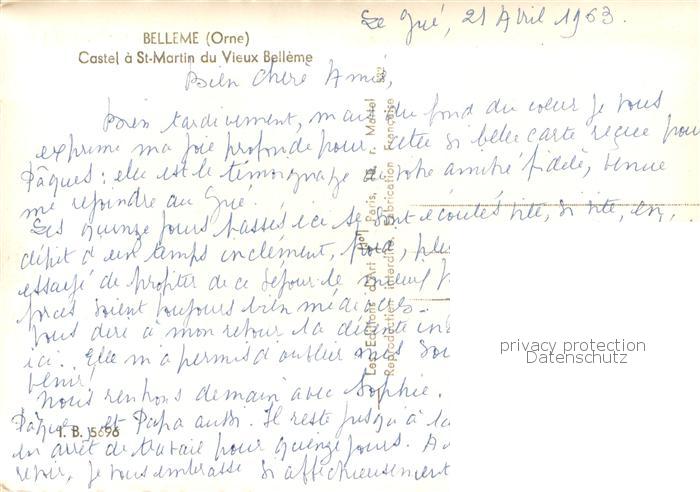 Le Gué, 21 Avril 1963.
BELLEME (Orne)
Castel à St-Martin du Vieux Bellème
Bien chère Amie,
Bien tardivement, mais du fond du coeur je vous
exprime ma joie profonde pour cette si belle carte reçue pour
Pâques : elle est le témoignage de votre amitié fidèle, venue
me rejoindre au Gué.
Les quinze jours passés ici se sont écoulés vite, si vite, en
dépit d'un temps inclément, froid,
essayé de profiter de ce séjour le mieux
forces soient toujours bien médiocres.
vous dire à mon retour la détente
ici. Elle m'a permis d'oublier mes
venir!
Nous rentrons demain avec Sophie.
Pâques et Papa aussi. Il reste jusqu'à
en arrêt de travail pour quinze jours.
revoir, je vous embrasse si affectueusement
I. B. 5696
Les Editions d'Art Paris, r. Martel
Reproduction Interdite. Fabrication Française
privacy protection
Datenschutz